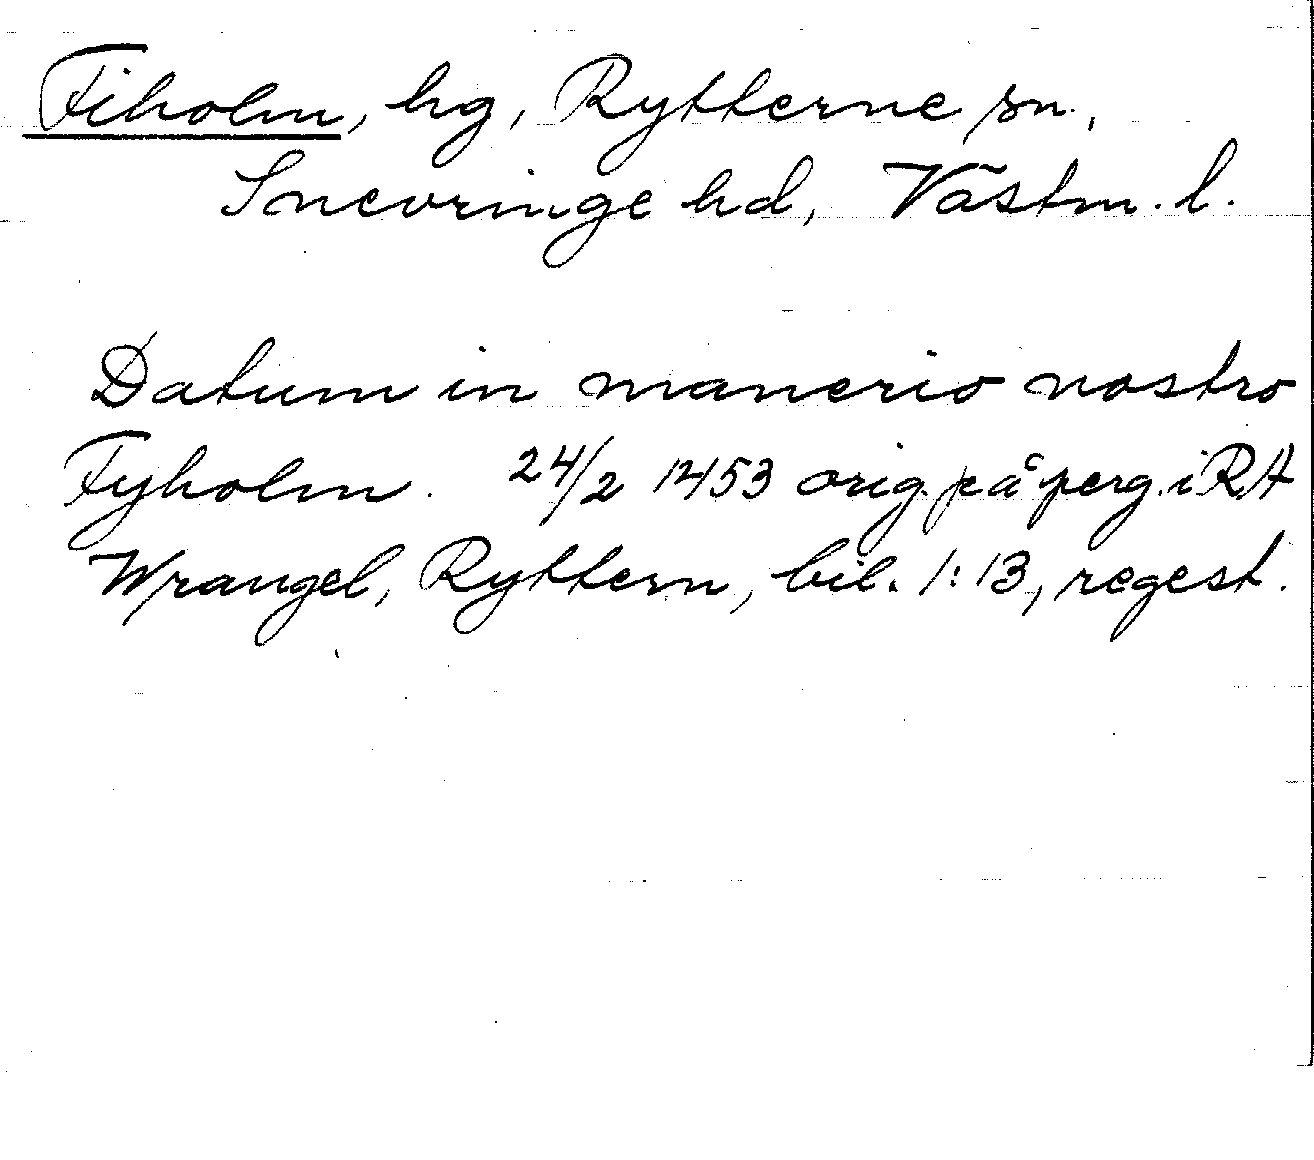 Fiholm, hg, Rytterne sn.,
Snevringe hd, Västm. l.
Datum in manerio nostro
Fyholm. 24/2 1453 orig. på perg. i RA
Wrangel, Ryttern, bil. 1:13, regest.